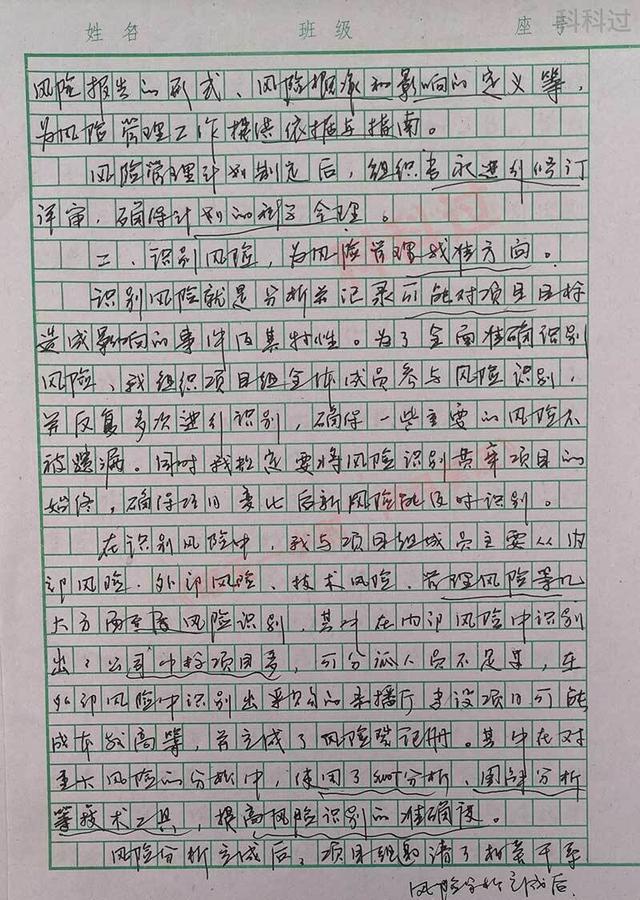 姓名 班级 座号
科科过
风险报告的形式、风险概率和影响的定义等,
为风险管理工作提供依据与指南。
风险管理计划制定后,组织专家进行修订
评审,确保计划的科学合理。
二、识别风险,为风险管理找准方向。
识别风险就是分析并记录可能对项目目标
造成影响的事件及其特性。为了全面准确识别
风险,我组织项目组全体成员参与风险识别,
并反复多次进行识别,确保一些主要的风险不
被遗漏。同时我拟定要将风险识别贯穿项目的
始终,确保项目变化后新风险能及时识别。
在识别风险中,我与项目组成员主要从内
部风险、外部风险、技术风险、管理风险等几
大方面 风险识别,其中在内部风险中识别
出了公司中标项目多,可分派人员不足等,在
外部风险中识别出 的录播厅建设项目可能
成本较高等,并生成了风险登记册。其中在对
重大风险的分析中,使用了swot分析、图解分析
等技术工具,提高风险识别的准确度。
风险分析完成后,项目组邀请了相关干系
风险分析完成后